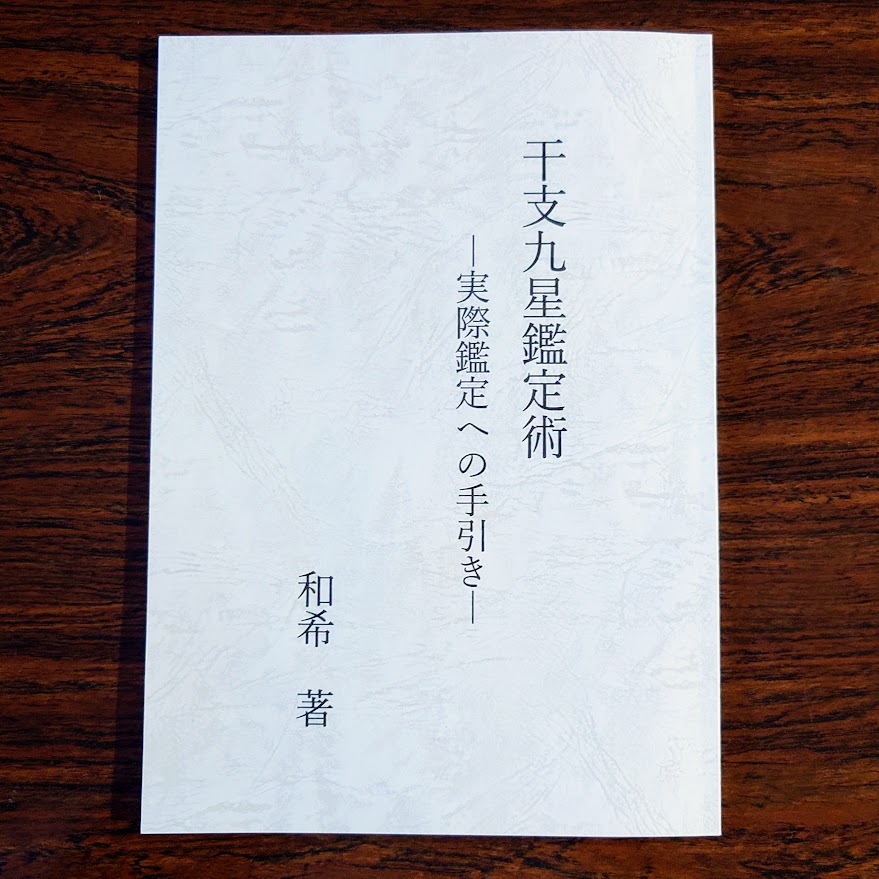 干支九星鑑定術
―実際鑑定への手引き―
和希　著